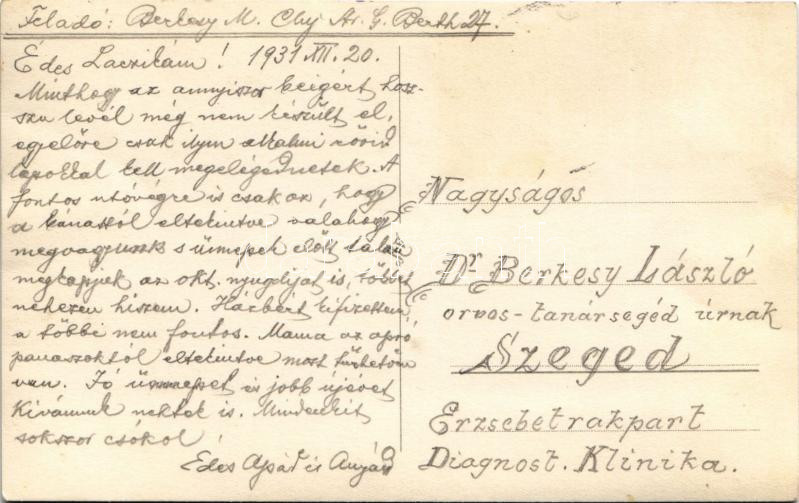 Feladó: Berkesy M. Cluj Str. G. Berth 27.
Édes Laczikám! 1931 XII. 20.
Minthogy az annyiszor beigért hosz-
szu levél még nem készült el,
egyelőre csak ilyen alkalmi rövid
lapokkal kell megelégednetek. A
fontos utóvégre is csak az, hogy
a bánattól eltekintve valahogy
megvagyunk s ünnepek előtt talán
megkapjuk az okt. nyugdijat is, többet
nehezen hiszem. Házbért kifizettem
a többi nem fontos. Mama az apró
panaszoktól eltekintve most tűrhetően
van. Jó ünnepet és jobb újévet
Kívánunk nektek is. Mindenkit
sokszor csókol!
Édes Apád és Anyád
Nagyságos
Dr Berkesy László
orvos-tanársegéd úrnak
Szeged
Erzsebetrakpart
Diagnost. Klinika.